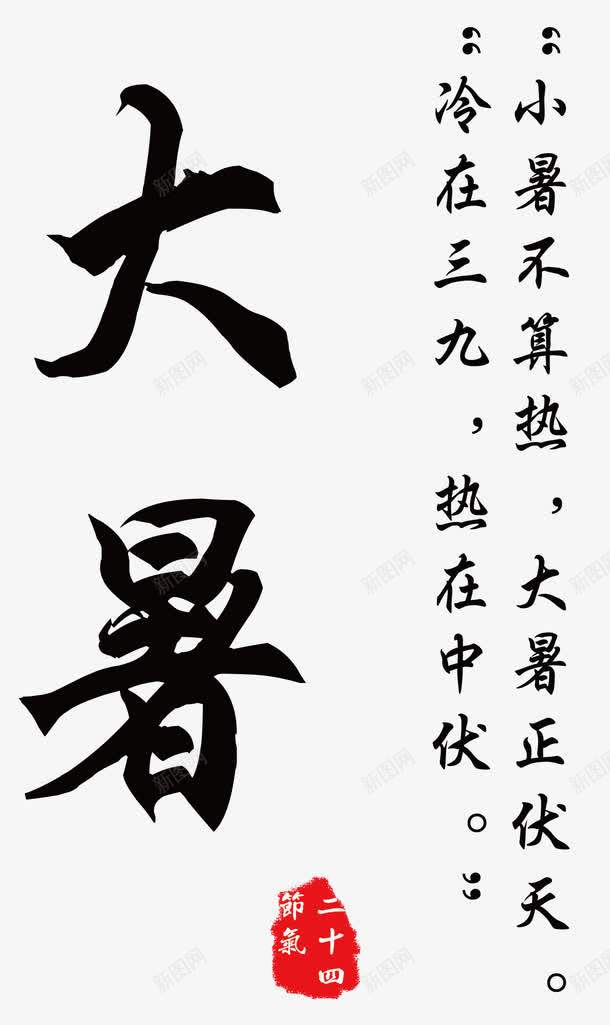 大暑
“小暑不算热，大暑正伏天。
“冷在三九，热在中伏。”
二十四
節氣
新图网